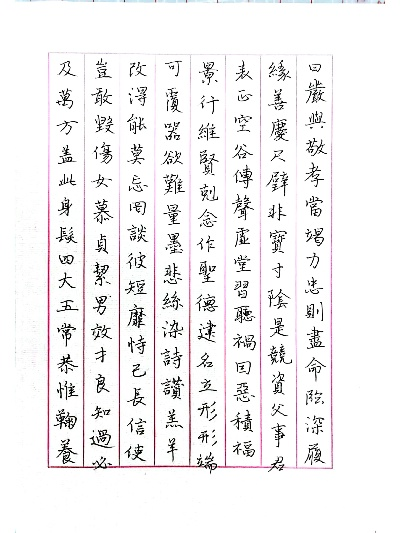 曰嚴與敬孝當竭力忠則盡命臨深履
緣善慶尺璧非寶寸陰是競資父事君
表正空谷傳聲虛堂習聽禍因惡積福
景行維賢剋念作聖德建名立形形端
可覆器欲難量墨悲絲染詩讚羔羊
改得能莫忘罔談彼短靡恃己長信使
豈敢毀傷女慕貞絜男效才良知過必
及萬方蓋此身髮四大五常恭惟鞠養